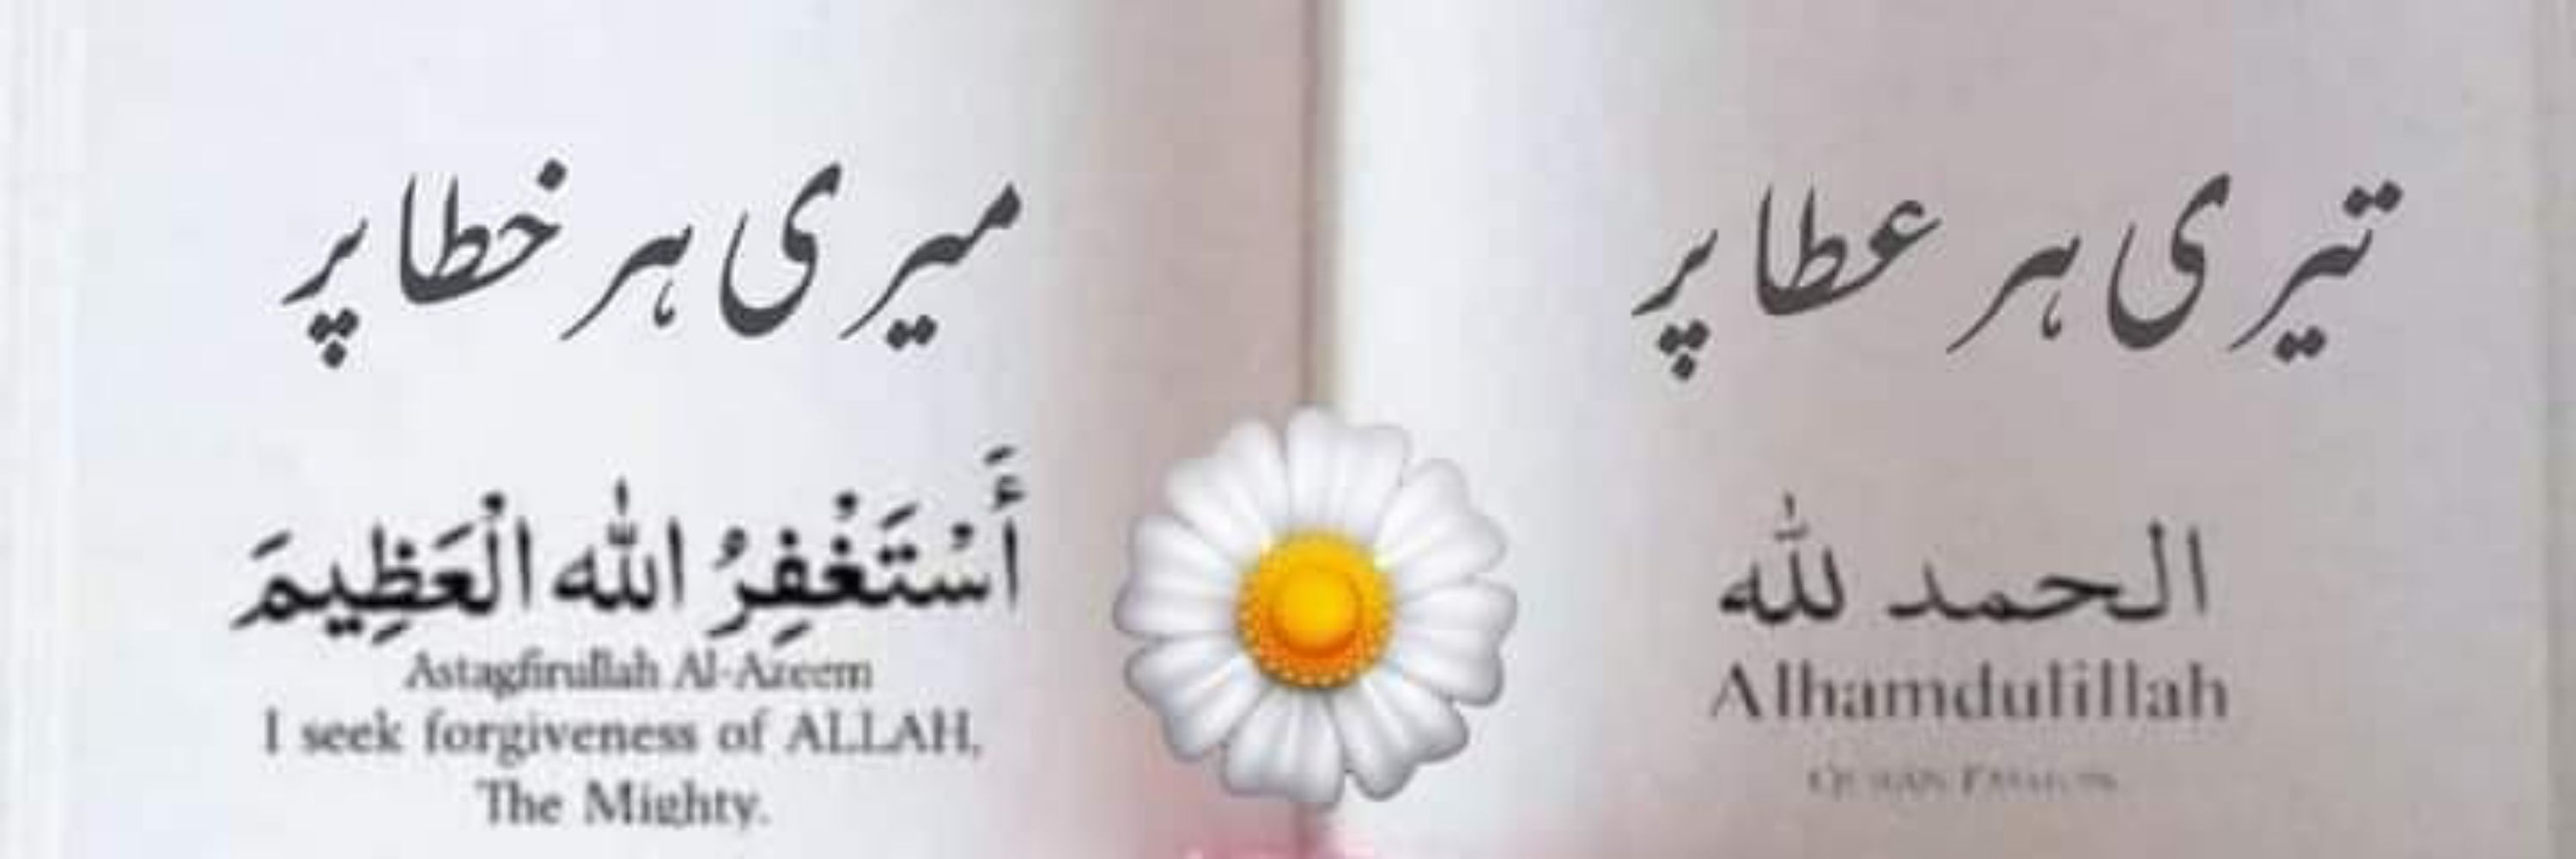 میری ہر خطا پر
أَسْتَغْفِرُ اللّٰه الْعَظِيمَ
Astagfirullah Al-Azeem
I seek forgiveness of ALLAH,
The Mighty.
تیری ہر عطا پر
الحمد للّٰه
Alhamdulillah